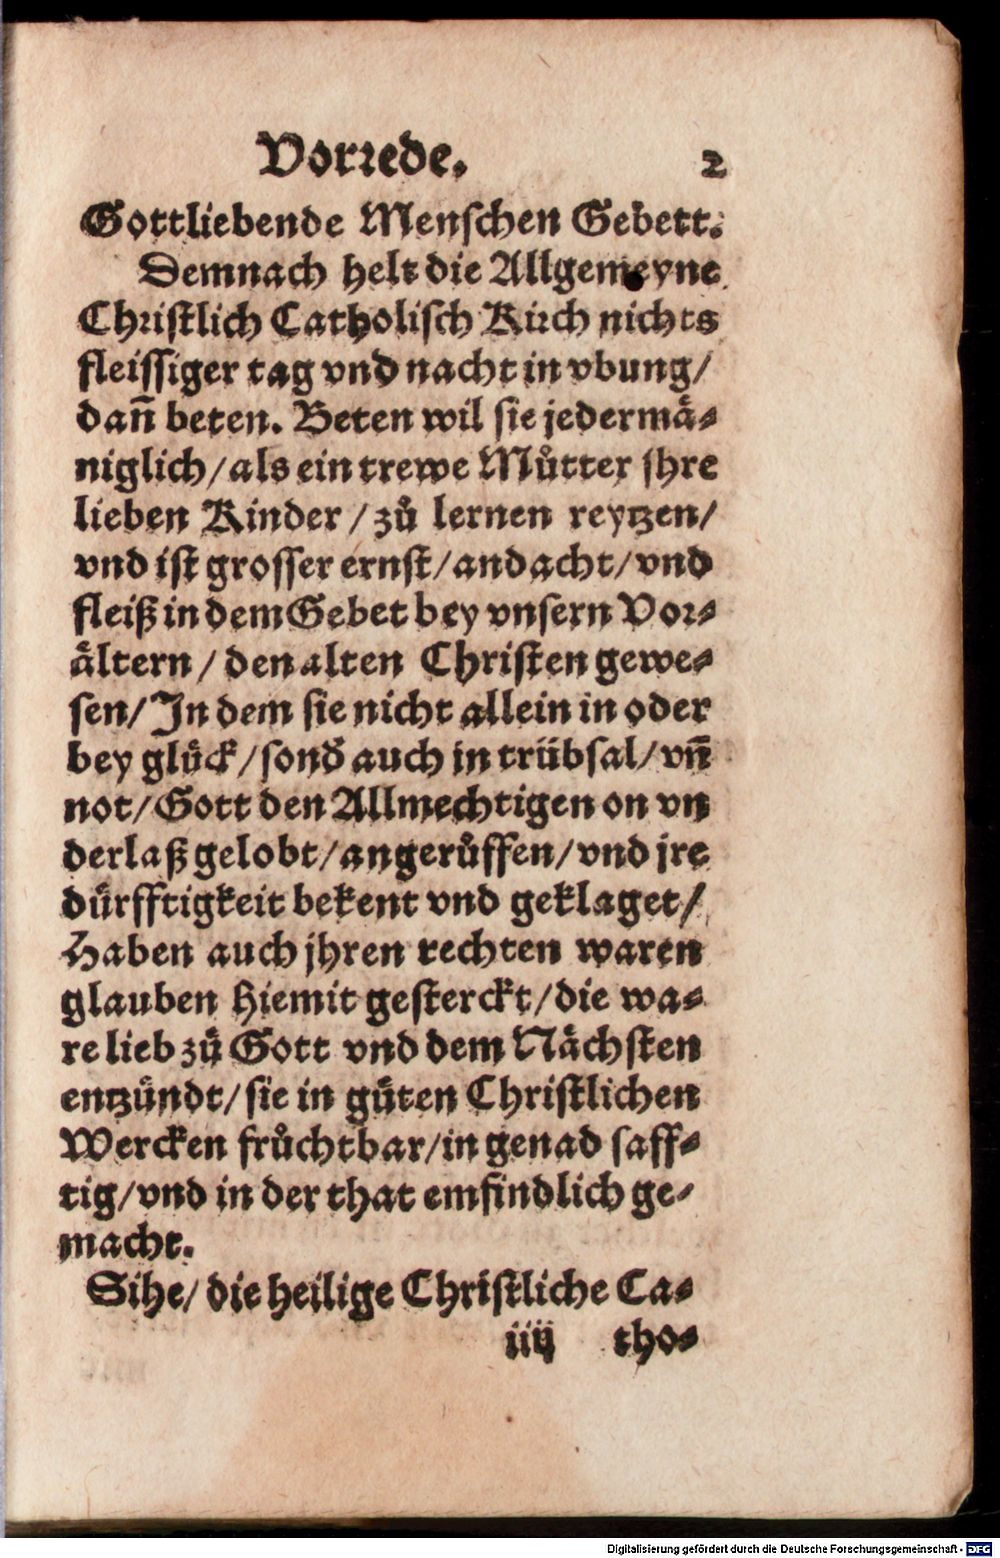 Vorrede. 2
Gottliebende Menschen Gebett.
Demnach helt die Allgemeyne
Christlich Catholisch Kirch nichts
fleissiger tag vnd nacht in vbung/
dañ beten. Beten wil sie jedermä-
niglich/als ein trewe Můtter jhre
lieben Kinder/zů lernen reytzen/
vnd ist grosser ernst/andacht/vnd
fleiß in dem Gebet bey vnsern Vor-
ältern/den alten Christen gewe-
sen/In dem sie nicht allein in oder
bey glück/sond̃ auch in trübsal/vñ
not/Gott den Allmechtigen on vn
derlaß gelobt/angerůffen/vnd jre
dürfftigkeit bekent vnd geklaget/
Haben auch jhren rechten waren
glauben hiemit gesterckt/die wa-
re lieb zů Gott vnd dem Nächsten
entzündt/sie in gůten Christlichen
Wercken frůchtbar/in genad saff-
tig/vnd in der that emfindlich ge-
macht.
Sihe/die heilige Christliche Ca-
iiij tho-
Digitalisierung gefördert durch die Deutsche Forschungsgemeinschaft - DFG